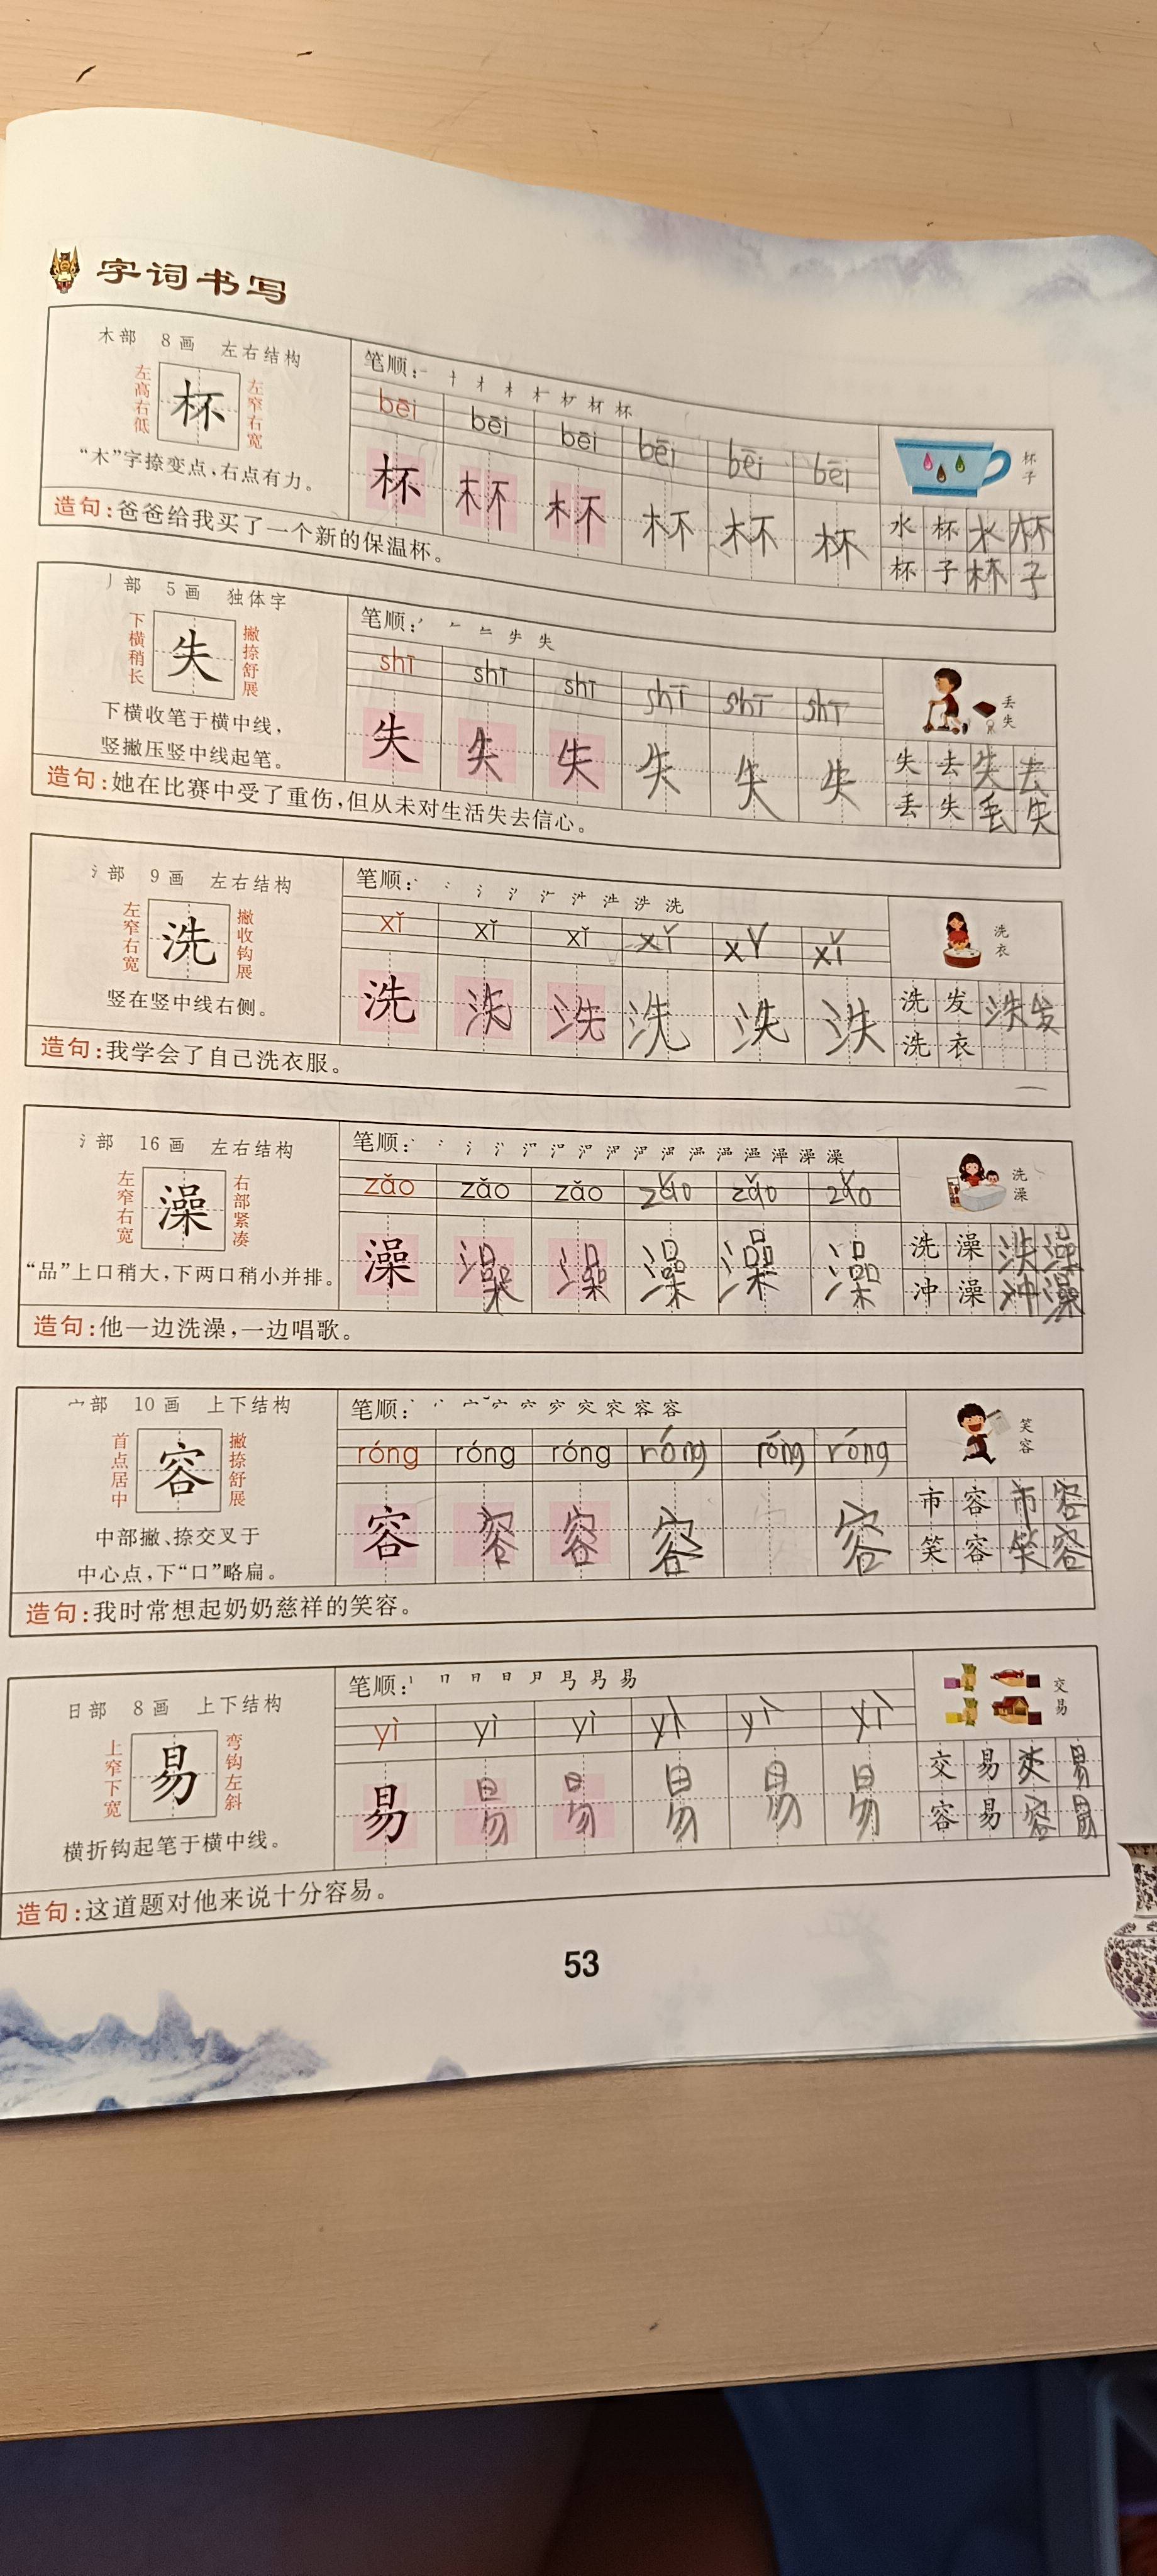 字词书写
木部 8画 左右结构
左高右低
杯
左窄右宽
“木”字捺变点，右点有力。
笔顺：
bēi bēi bēi bēi bēi bēi
杯 杯 杯 杯 杯 杯
杯子
水 杯 水 杯
杯 子 杯 子
造句：爸爸给我买了一个新的保温杯。
丿部 5画 独体字
下横稍长
失
撇捺舒展
下横收笔于横中线，
竖撇压竖中线起笔。
笔顺：
shī shī shī shī shī shī
失 失 失 失 失 失
丢失
失 去 失 去
丢 失 丢 失
造句：她在比赛中受了重伤，但从未对生活失去信心。
氵部 9画 左右结构
左窄右宽
洗
撇收钩展
竖在竖中线右侧。
笔顺：
xǐ xǐ xǐ xǐ xǐ xǐ
洗 洗 洗 洗 洗 洗
洗衣
洗 发 洗 发
洗 衣
造句：我学会了自己洗衣服。
氵部 16画 左右结构
左窄右宽
澡
右部紧凑
“品”上口稍大，下两口稍小并排。
笔顺：
zǎo zǎo zǎo zǎo zǎo zǎo
澡 澡 澡 澡 澡 澡
洗澡
洗 澡 洗 澡
冲 澡 冲 澡
造句：他一边洗澡，一边唱歌。
宀部 10画 上下结构
首点居中
容
撇捺舒展
中部撇、捺交叉于
中心点，下“口”略扁。
笔顺：
róng róng róng róng róng róng
容 容 容 容 容
笑容
市 容 市 容
笑 容 笑 容
造句：我时常想起奶奶慈祥的笑容。
日部 8画 上下结构
上窄下宽
易
弯钩左斜
横折钩起笔于横中线。
笔顺：
yì yì yì yì yì yì
易 易 易 易 易 易
交易
交 易 交 易
容 易 容 易
造句：这道题对他来说十分容易。
53